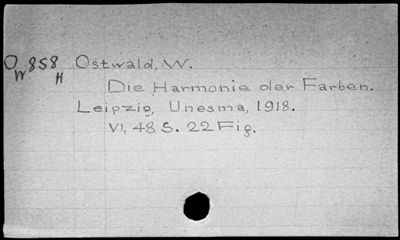 O 858 Ostwald, W.
W H
Die Harmonie der Farben.
Leipzig, Unesma, 1918.
VI, 48 S. 22 Fig.